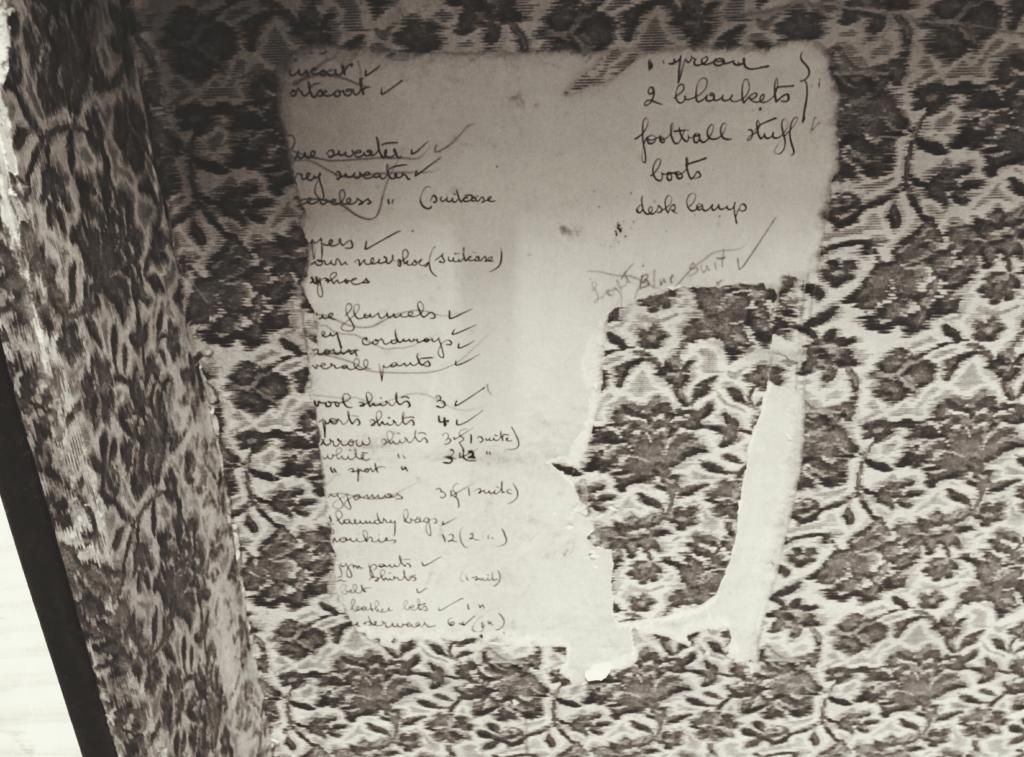 ortscoat ✓
ue sweater ✓ ✓
rey sweater ✓
eeveless " (suitcase
pers ✓
own new shoes (suitcase)
shoes
ue flannels ✓
ey corduroys ✓
verall pants ✓
wool shirts 3 ✓
ports shirts 4 ✓
rrow shirts 3 (1 suitc)
white " 2 "
" sport " 3
yjamas 3 (1 suitc)
laundry bags ✓
hankies 12 (2 ")
gym pants ✓
shirts (1 suit)
belt ✓
leather belts ✓ 1 "
nderwear 6 ✓ (1")
2 blankets
football stuff
boots
desk lamp
Light Blue suit ✓